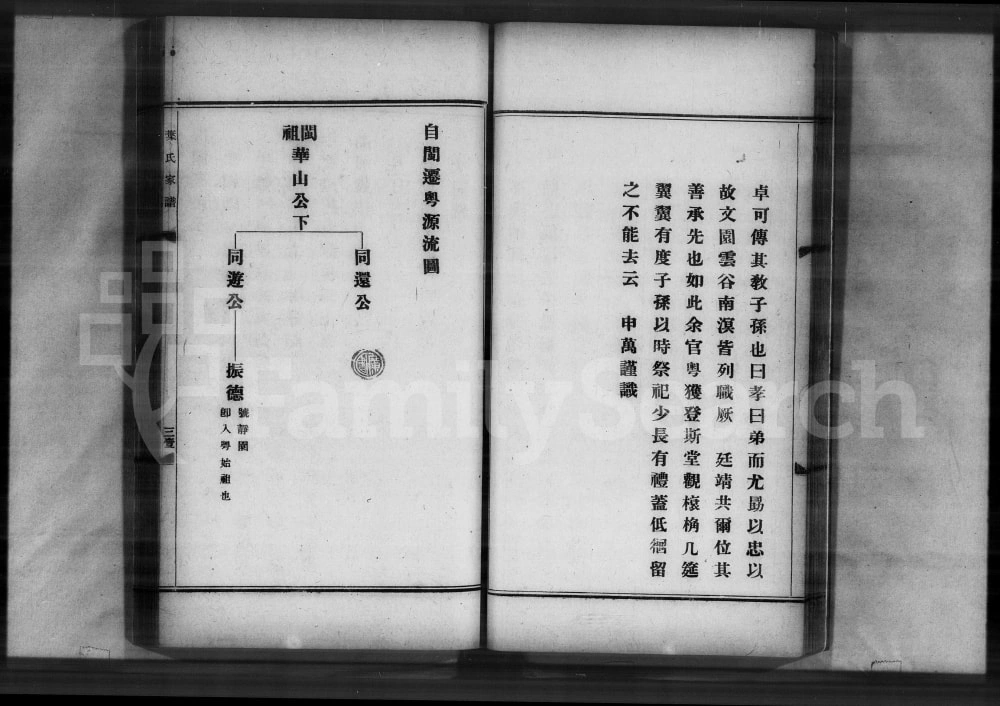 卓可傳其敎子孫也曰孝曰弟而尤勗以忠以
故文園雲谷南溟皆列職厥　廷靖共爾位其
善承先也如此余官粤獲登斯堂觀榱桷几筵
翼翼有度子孫以時祭祀少長有禮蓋低徊留
之不能去云　申萬謹識
自閩遷粤源流圖
閩祖華山公下
同還公
同遊公
振德
號靜閣
卽入粤始祖也
葉氏家譜
FamilySearch